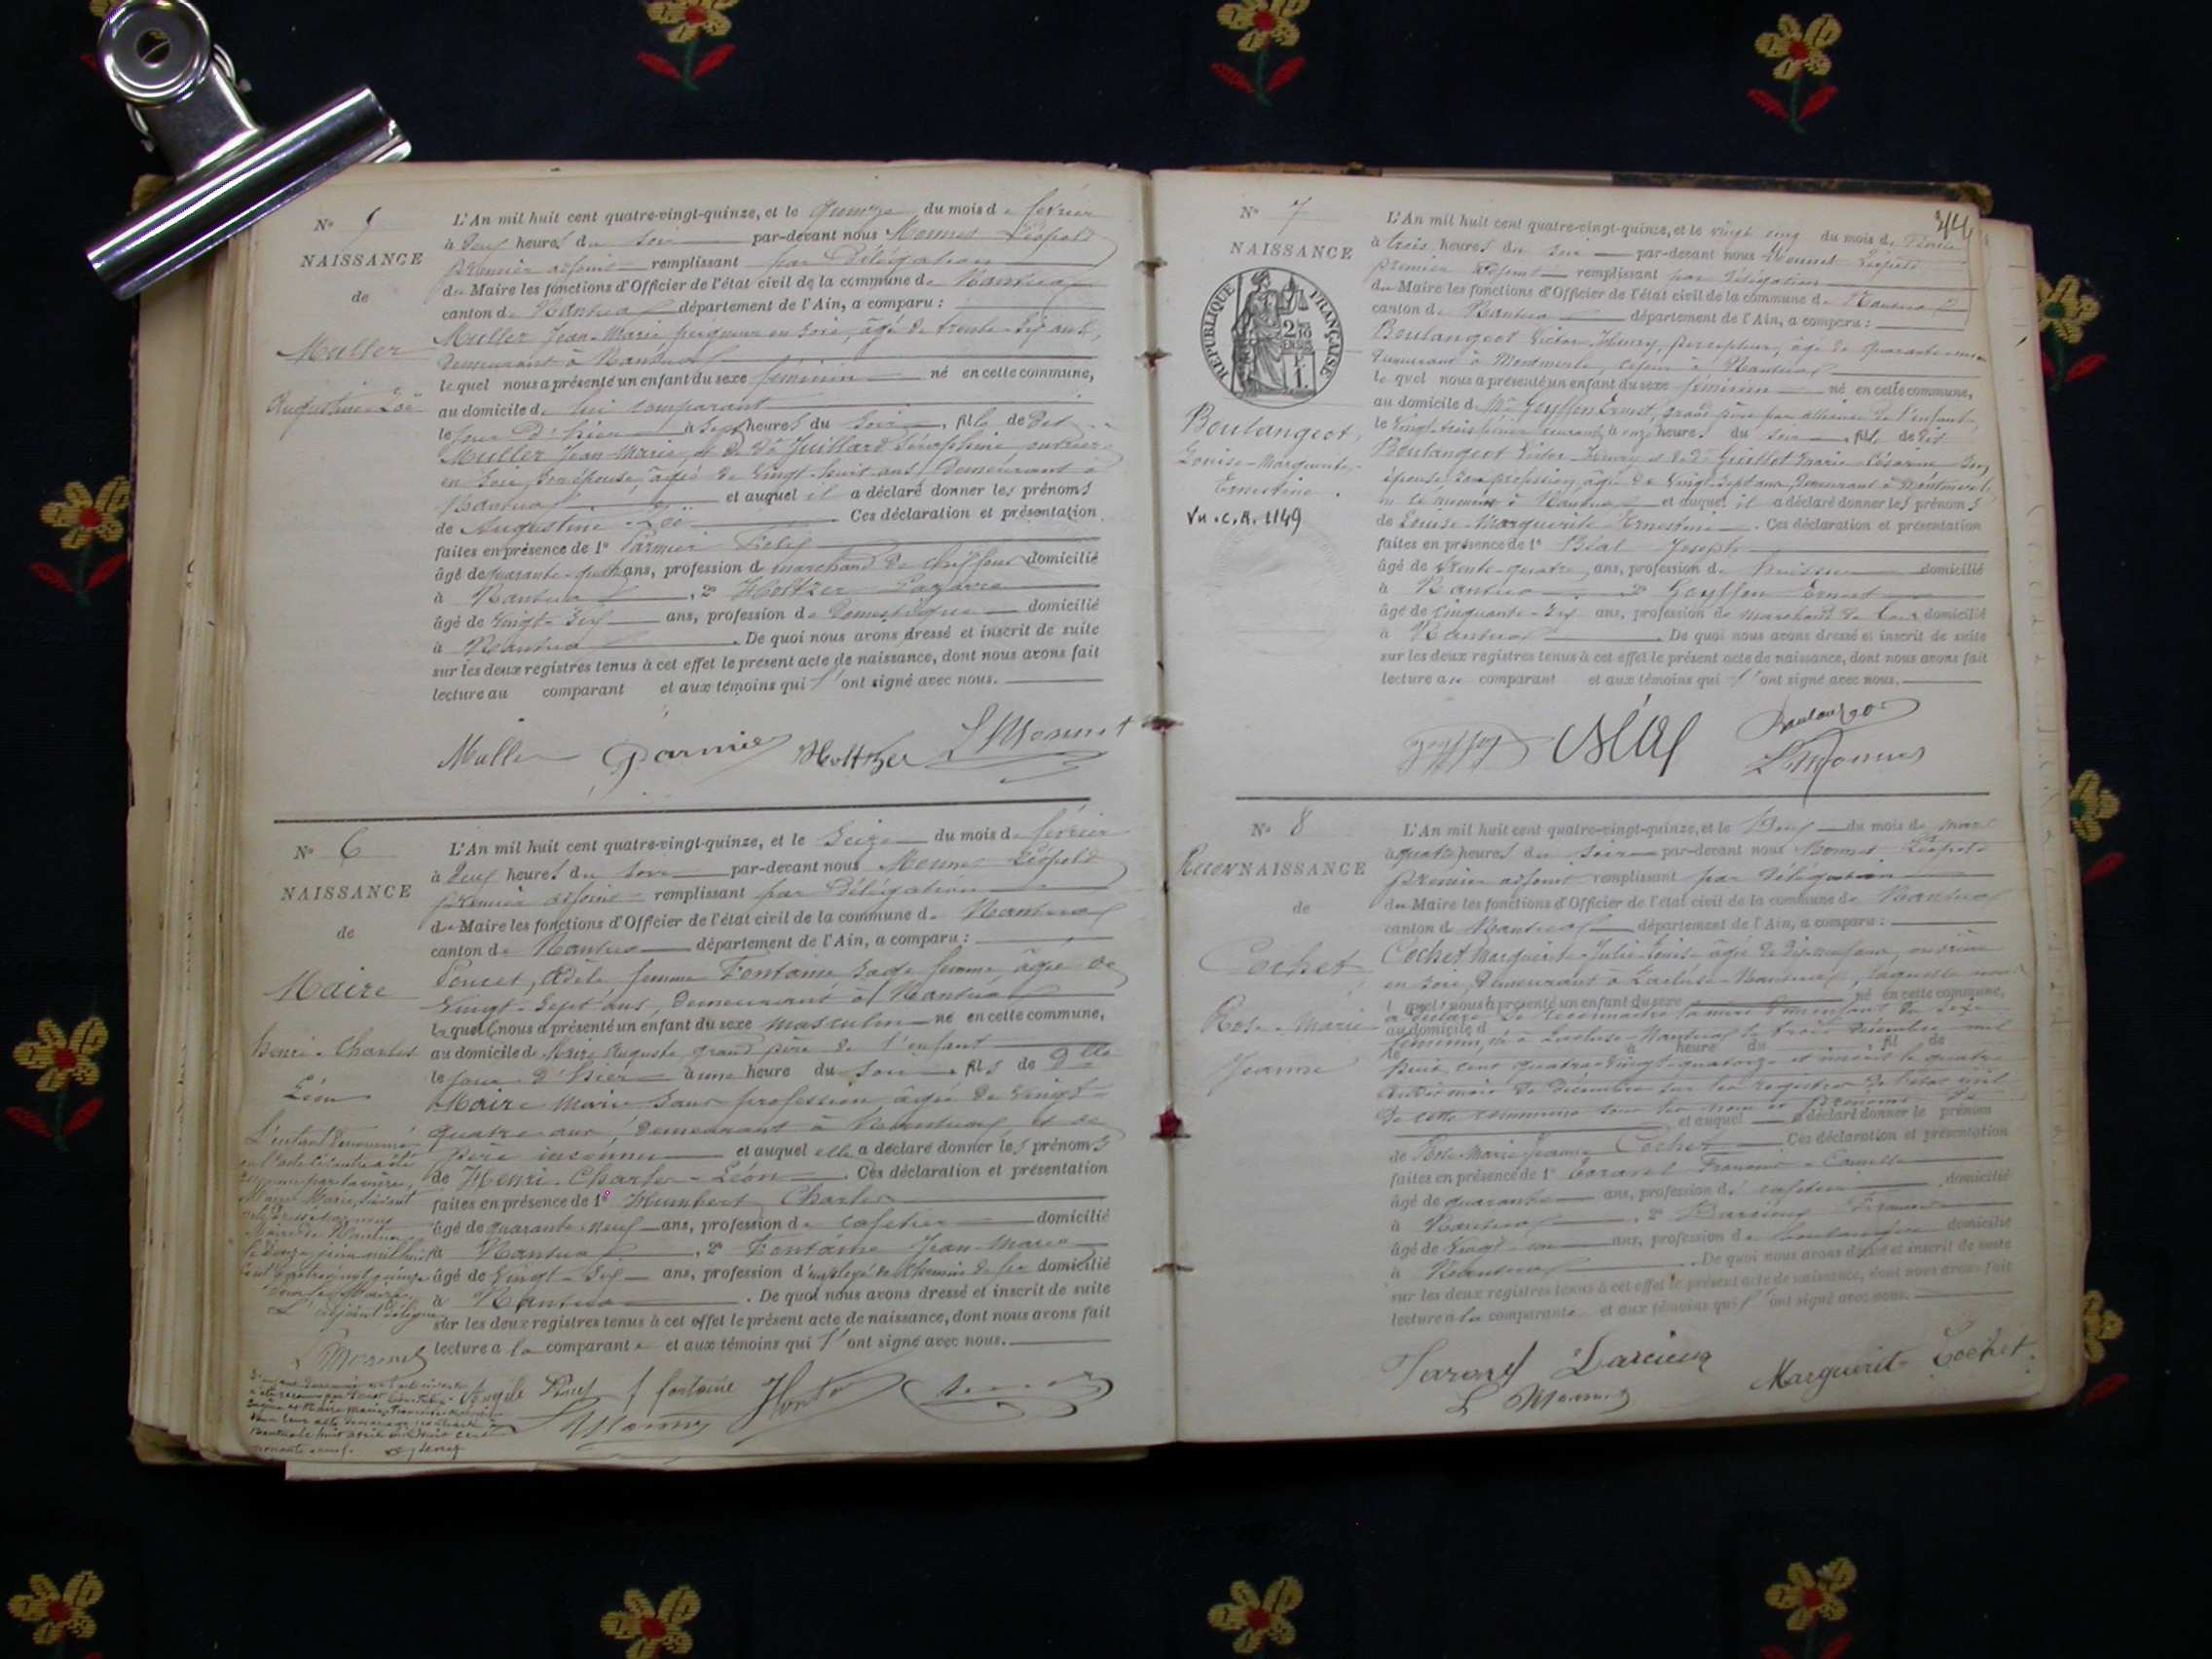 N° 5
NAISSANCE
de
Muller
Augustine Zoë
L'An mil huit cent quatre-vingt-quinze, et le quinze du mois de février
à deux heures du soir par-devant nous Monnet Léopold
premier adjoint remplissant par délégation
du Maire les fonctions d'Officier de l'état civil de la commune de Nantua
canton de Nantua département de l'Ain, a comparu :
Muller Jean-Marie, en soie, âgé de trente-six ans,
demeurant à Nantua
lequel nous a présenté un enfant du sexe féminin né en cette commune,
au domicile de lui comparant
le jour d'hier à sept heures du soir, fille de dit
Muller Jean-Marie et de De Juillard Séraphine, ouvrière
en soie, son épouse, âgée de vingt-huit ans, demeurant à
Nantua et auquel il a déclaré donner les prénoms
de Augustine Zoë. Ces déclaration et présentation
faites en présence de 1° Parmier
âgé de quarante-quatre ans, profession de marchand de chiffons domicilié
à Nantua, 2° Holtzer
âgé de vingt-six ans, profession de domestique domicilié
à Nantua. De quoi nous avons dressé et inscrit de suite
sur les deux registres tenus à cet effet le présent acte de naissance, dont nous avons fait
lecture au comparant et aux témoins qui l'ont signé avec nous.
Muller Parmier Holtzer L Monnet
N° 6
NAISSANCE
de
Maire
Henri-Charles
Léon
L'enfant dénommé
en l'acte ci-contre a été
reconnu par la mère,
Maire Marie, suivant
acte dressé par nous
Maire de Nantua
le douze juin mil huit
cent quatre-vingt-quinze
Pour le Maire,
L'adjoint délégué
L Monnet
L'An mil huit cent quatre-vingt-quinze, et le seize du mois de février
à deux heures du soir par-devant nous Monnet Léopold
premier adjoint remplissant par délégation
du Maire les fonctions d'Officier de l'état civil de la commune de Nantua
canton de Nantua département de l'Ain, a comparu :
Poncet, Adèle femme Fontaine sage femme, âgée de
vingt-sept ans, demeurant à Nantua
laquelle nous a présenté un enfant du sexe masculin né en cette commune,
au domicile de Maire Auguste, grand père de l'enfant
le jour d'hier à une heure du soir, fils de Dlle
Maire Marie sans profession âgée de vingt-
quatre ans, demeurant à Nantua, et de
père inconnu et auquel elle a déclaré donner les prénoms
de Henri-Charles-Léon. Ces déclaration et présentation
faites en présence de 1° Humbert Charles
âgé de quarante-neuf ans, profession de cafetier domicilié
à Nantua, 2° Fontaine Jean-Marie
âgé de vingt-six ans, profession d'employé de chemin de fer domicilié
à Nantua. De quoi nous avons dressé et inscrit de suite
sur les deux registres tenus à cet effet le présent acte de naissance, dont nous avons fait
lecture à la comparante et aux témoins qui l'ont signé avec nous.
Poncet f fontaine
L Monnet
N° 7
NAISSANCE
RÉPUBLIQUE FRANÇAISE
Boulangeot,
Louise-Marguerite-
Ernestine.
Vu.C.R. 1149
244
L'An mil huit cent quatre-vingt-quinze, et le vingt cinq du mois de Février
à trois heures du soir par-devant nous Monnet Léopold
premier adjoint remplissant par délégation
du Maire les fonctions d'Officier de l'état civil de la commune de Nantua
canton de Nantua département de l'Ain, a comparu :
Boulangeot Victor-Henry, percepteur, âgé de quarante
demeurant à à Nantua
lequel nous a présenté un enfant du sexe féminin né en cette commune,
au domicile de Mr Geyssen Ernest, grand père par alliance de l'enfant,
le vingt-trois février courant, à onze heures du soir, fille de dit
Boulangeot Victor-Henry et de De Guillot Marie-Césarine son
épouse sans profession, âgée de vingt-sept ans, demeurant à
à Nantua et auquel il a déclaré donner les prénoms
de Louise-Marguerite-Ernestine. Ces déclaration et présentation
faites en présence de 1° Béal Joseph
âgé de trente-quatre ans, profession de huissier domicilié
à Nantua, 2° Geyssen Ernest
âgé de cinquante-six ans, profession de marchand de domicilié
à Nantua. De quoi nous avons dressé et inscrit de suite
sur les deux registres tenus à cet effet le présent acte de naissance, dont nous avons fait
lecture au comparant et aux témoins qui l'ont signé avec nous.
Béal Boulangeot
L Monnet
N° 8
RecoNNAISSANCE
de
Cochet
Rose-Marie
Jeanne
L'An mil huit cent quatre-vingt-quinze, et le deux du mois de mars
à quatre heures du soir par-devant nous Monnet Léopold
premier adjoint remplissant par délégation
du Maire les fonctions d'Officier de l'état civil de la commune de Nantua
canton de Nantua département de l'Ain, a comparu :
Cochet Marguerite-Julie-Louise âgée de dix-neuf ans, ouvrière
en soie, demeurant à Lacluse-Nantua, laquelle nous
a déclaré se reconnaître la mère d'un enfant du sexe
féminin, né à Lacluse-Nantua le trois décembre mil
huit cent quatre-vingt-quatorze et inscrit le quatre
du dit mois de décembre sur les registres de l'état civil
de cette commune sous les nom et prénoms
et auquel a déclaré donner le prénom
de Rose-Marie-Jeanne Cochet. Ces déclaration et présentation
faites en présence de 1°
âgé de quarante ans, profession de cafetier domicilié
à Nantua, 2°
âgé de vingt ans, profession de domicilié
à Nantua. De quoi nous avons dressé et inscrit de suite
sur les deux registres tenus à cet effet le présent acte de naissance, dont nous avons fait
lecture à la comparante et aux témoins qui l'ont signé avec nous.
Marguerite Cochet
L Monnet